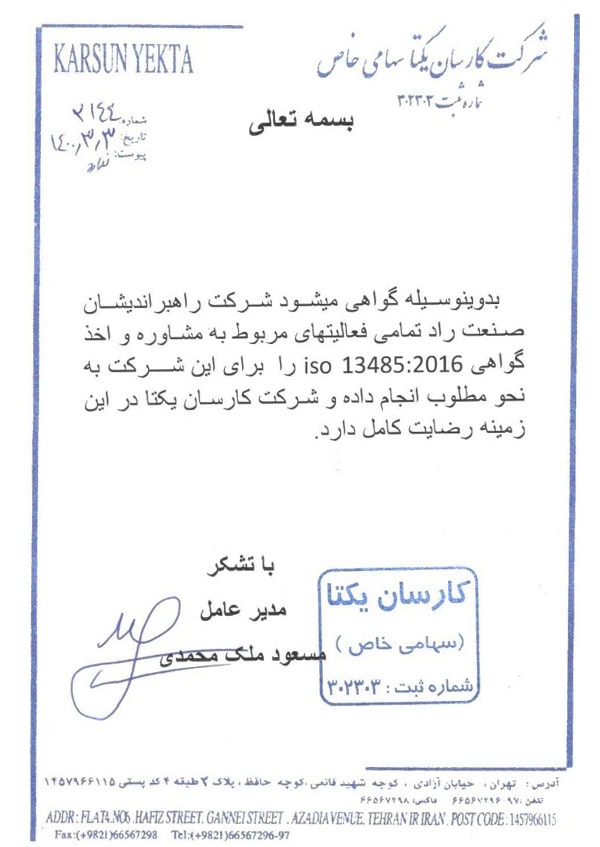 KARSUN YEKTA
شرکت کارسان یکتا سهامی خاص
شماره ثبت ۳۰۲۳۰۳
شماره: ۲۱۴۴
تاریخ: ۱۴۰۰,۳,۳
پیوست: ندارد
بسمه تعالی
بدوینوسیله گواهی میشود شرکت راهبراندیشان
صنعت راد تمامی فعالیتهای مربوط به مشاوره و اخذ
گواهی iso 13485:2016 را برای این شرکت به
نحو مطلوب انجام داده و شرکت کارسان یکتا در این
زمینه رضایت کامل دارد.
با تشکر
مدیر عامل
مسعود ملک محمدی
کارسان یکتا
(سهامی خاص)
شماره ثبت : ۳۰۲۳۰۳
آدرس: تهران، خیابان آزادی ، کوچه شهید قائمی،کوچه حافظ، پلاک ۲ طبقه ۴ کد پستی ۱۴۵۷۹۶۶۱۱۵
تلفن:۹۷-۶۶۵۶۷۲۹۶ فاکس: ۶۶۵۶۷۲۹۸
ADDR : FLAT4. NO6 .HAFIZ STREET. GANNEI STREET . AZADIA VENUE. TEHRAN IR IRAN . POST CODE : 1457966115
Fax:(+9821)66567298 Tel:(+9821)66567296-97